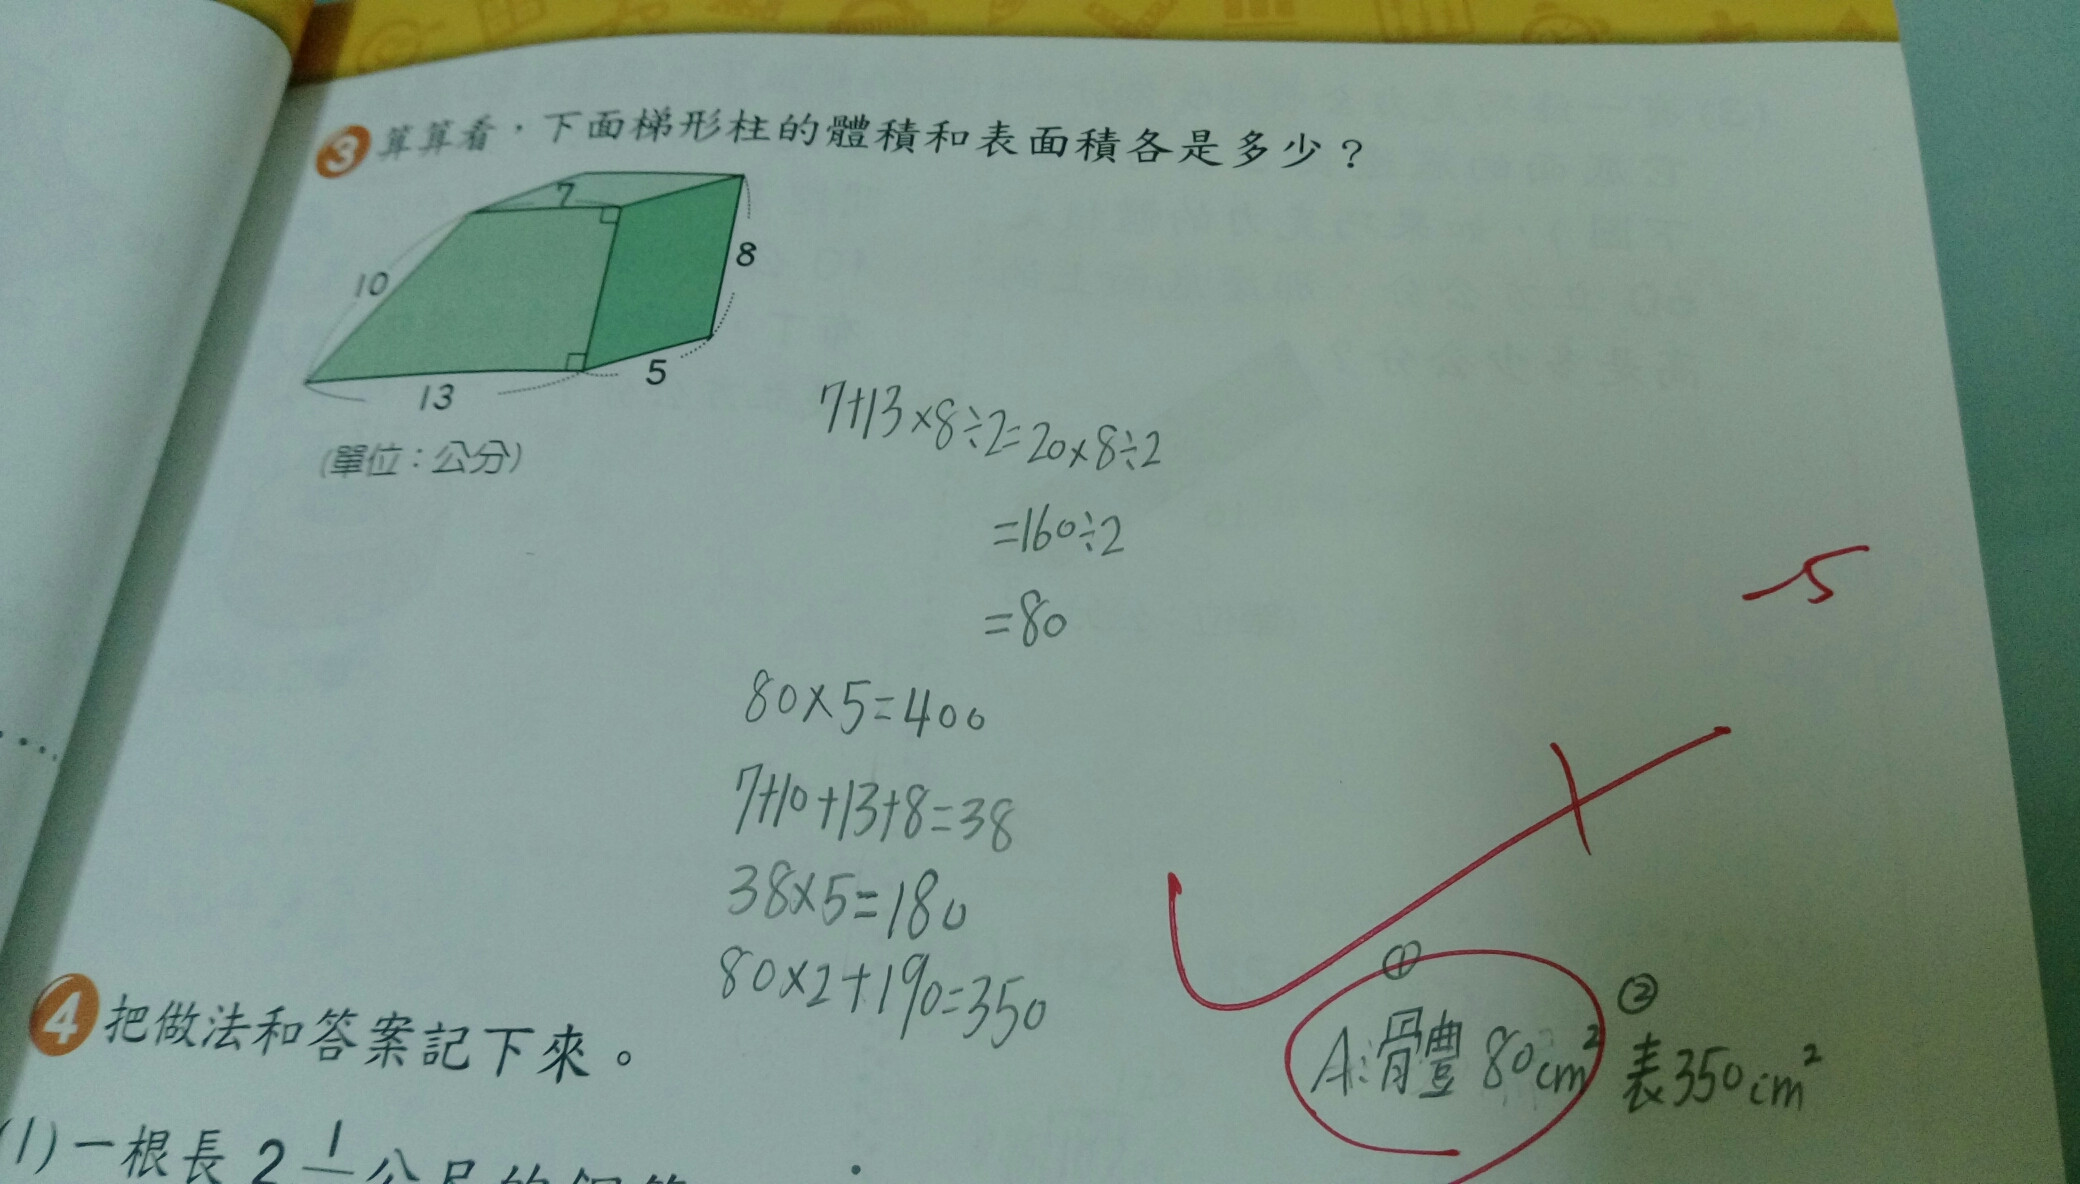 3 算算看，下面梯形柱的體積和表面積各是多少？
7
10
8
5
13
(單位：公分)
7+13×8÷2=20×8÷2
=160÷2
=80
80×5=400
7+10+13+8=38
38×5=180
80×2+190=350
-5
① ②
A:體 80cm² 表350cm²
4 把做法和答案記下來。
(1)一根長 2 1